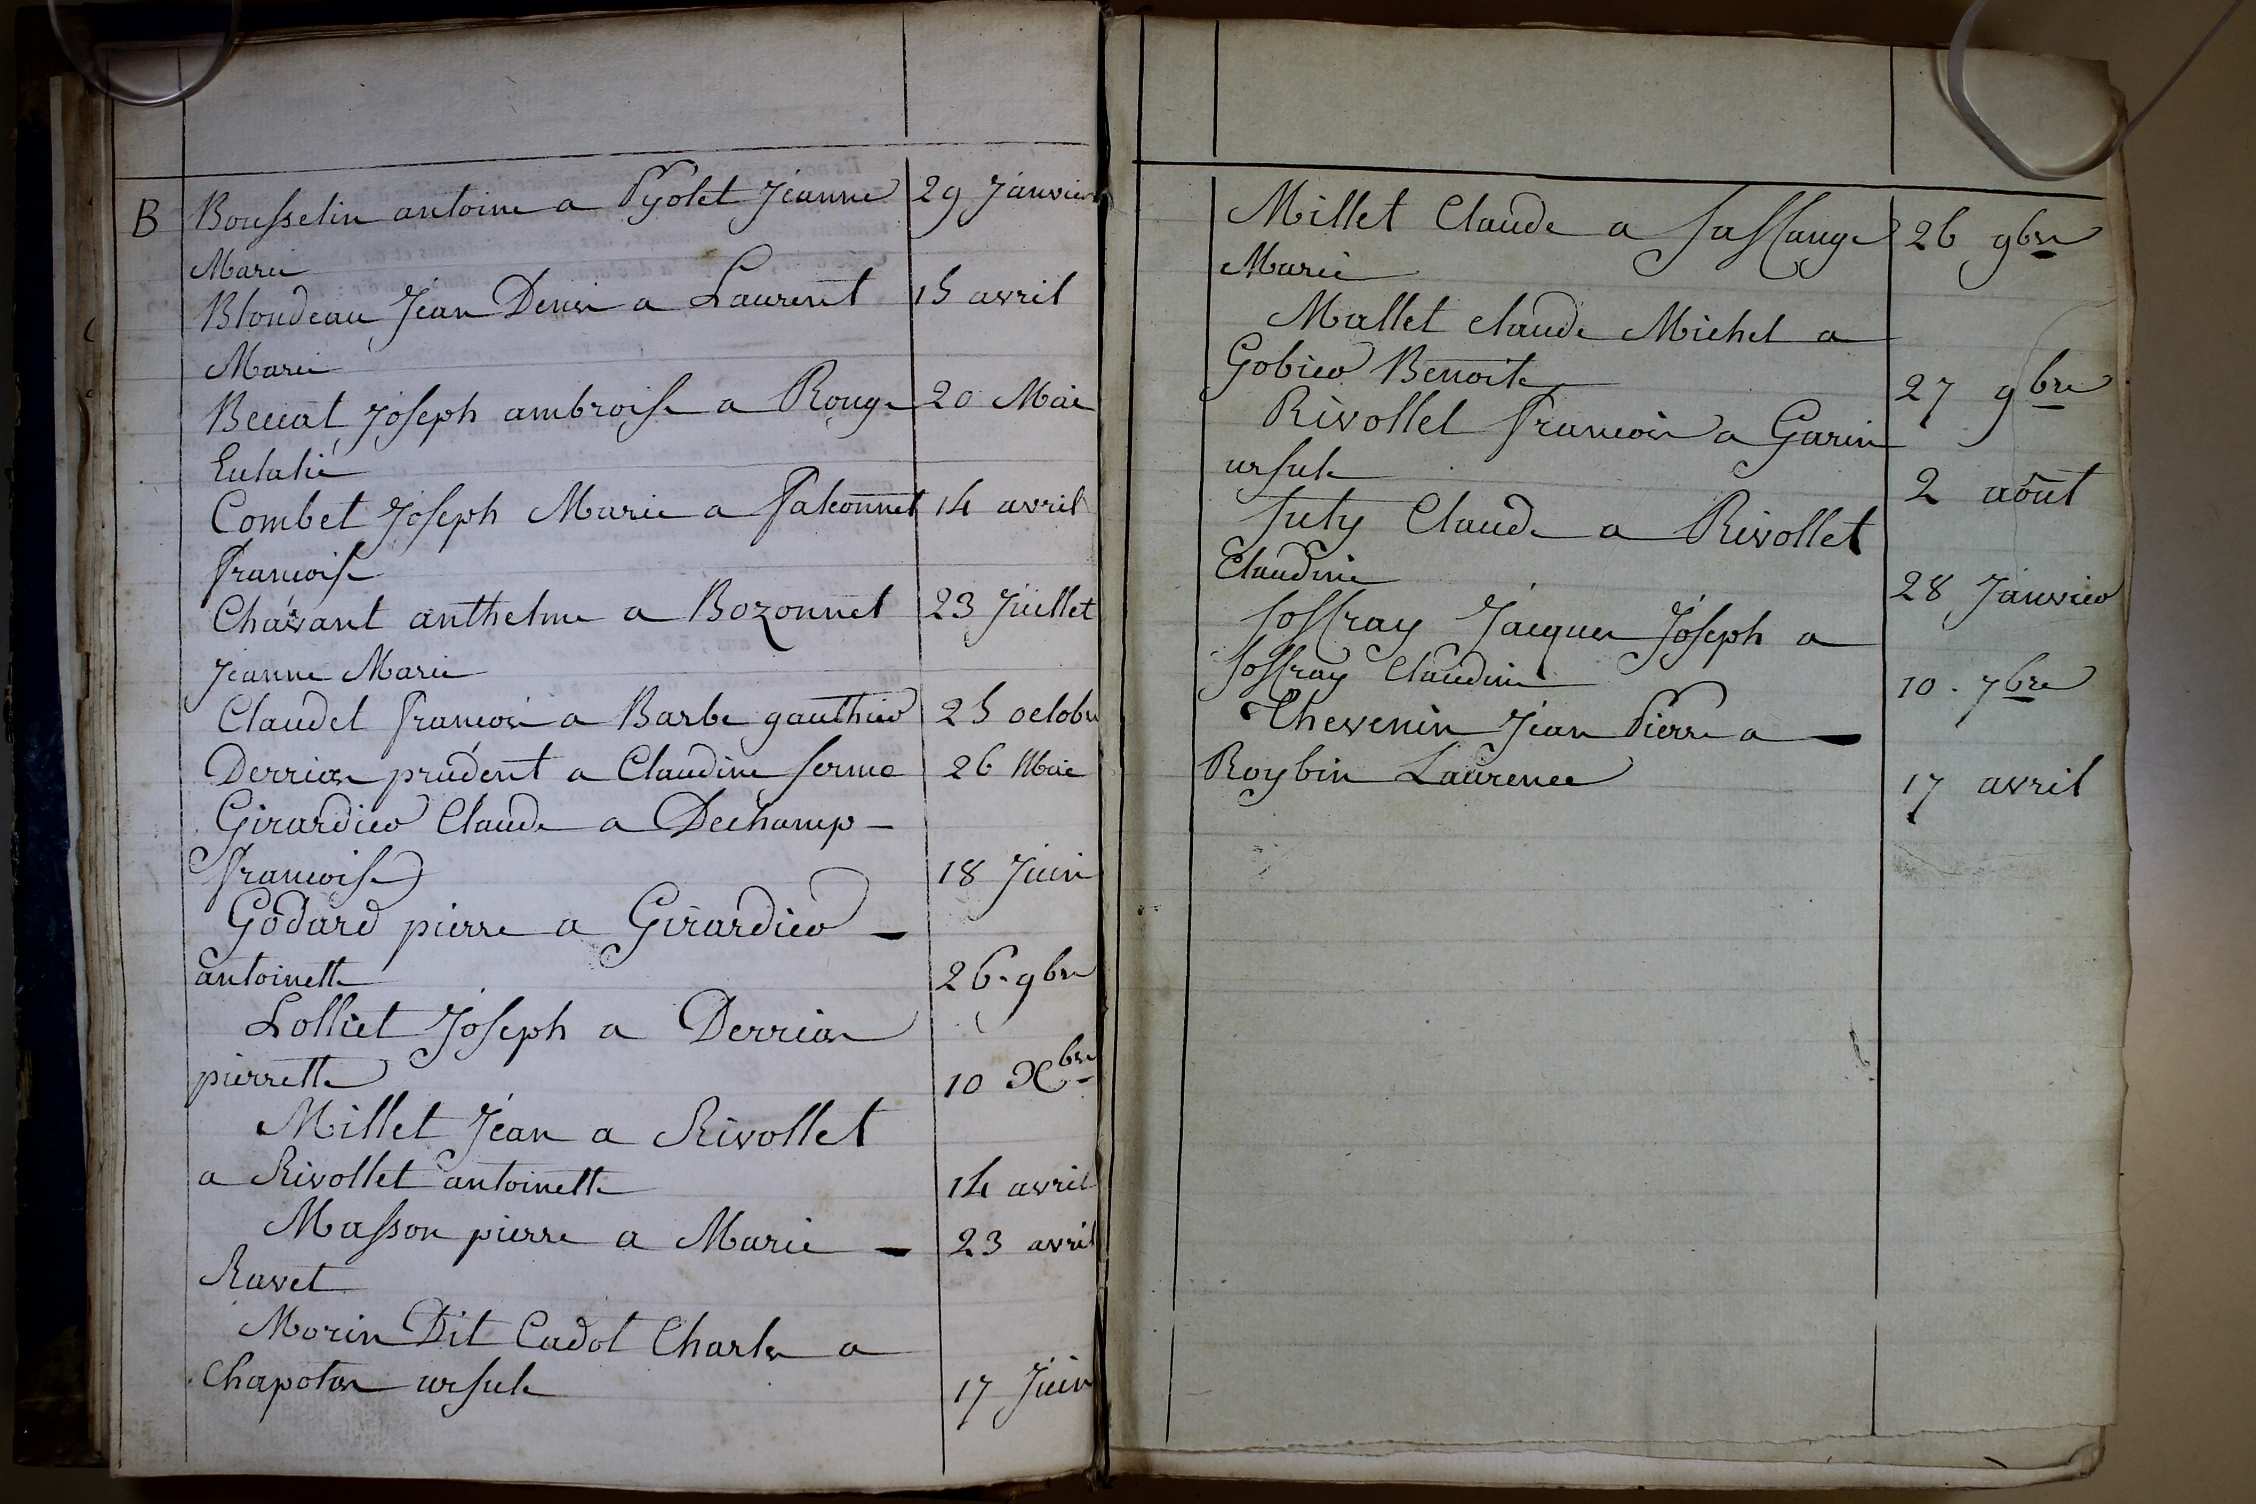 B Bousselin antoine a Pyolet Jeanne 29 Janvier
Marie
Blondeau Jean Denis a Laurent 15 avril
Marie
Beccat Joseph ambroise a Rouge 20 Mai
Eulalie
Combet Joseph Marie a falconnet 14 avril
françoise
Chavant anthelme a Bozonnet 23 Juillet
Jeanne Marie
Claudet françois a Barbe gauthier 25 octobre
Derrion prudent a Claudine ferme 26 Mai
Girardier Claude a Dechamp
françoise 18 Juin
Godard pierre a Girardier
antoinette 26 9bre
Lolliet Joseph a Derrion
pierrette 10 Xbre
Millet Jean a Rivollet
a Rivollet antoinette 14 avril
Masson pierre a Marie 23 avril
Ravet
Morin Dit Cadot Charles a
Chapoton ursule 17 Juin
Millet Claude a 26 9bre
Marie
Mallet claude Michel a
Gobier Benoite 27 9bre
Rivollet françois a Garin
ursule 2 août
Claude a Rivollet
Claudine 28 Janvier
Joffray Jacques Joseph a
Joffray Claudine 10. 7bre
Thevenin Jean Pierre a
Roybin Laurence 17 avril